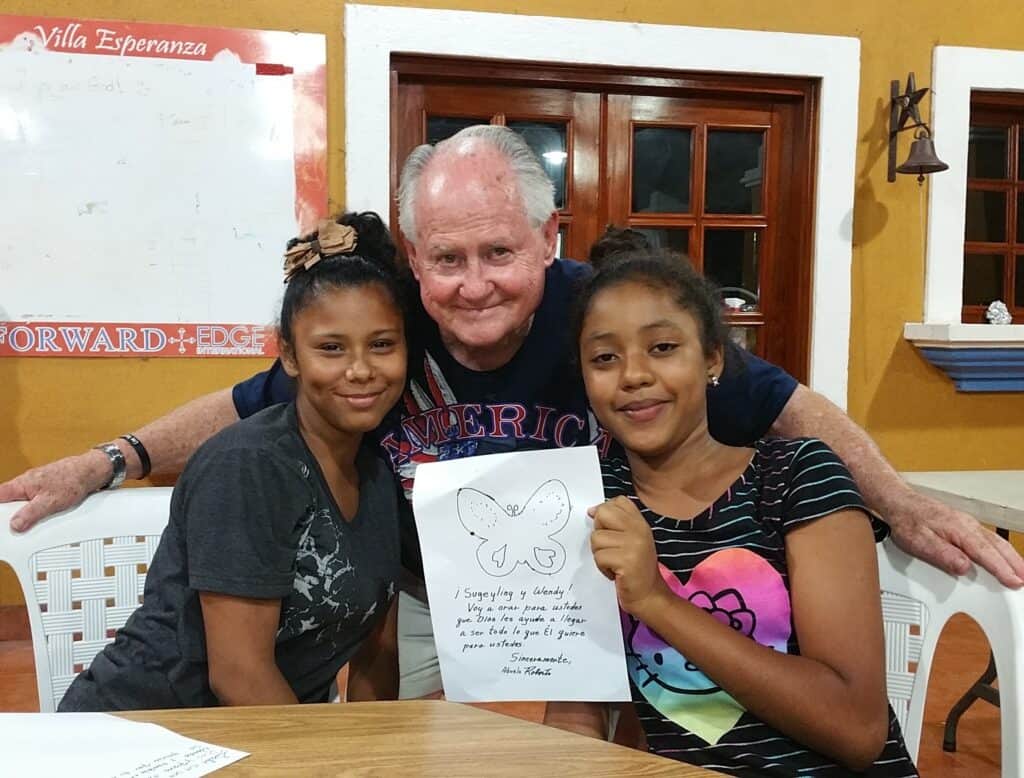 Villa Esperanza
God!
FORWARD EDGE
INTERNATIONAL
AMERICA
¡Sugeyling y Wendy!
Voy a orar para ustedes
que Dios les ayude a llegar
a ser todo lo que Él quiere
para ustedes.
Sinceramente,
Abuelo Roberto